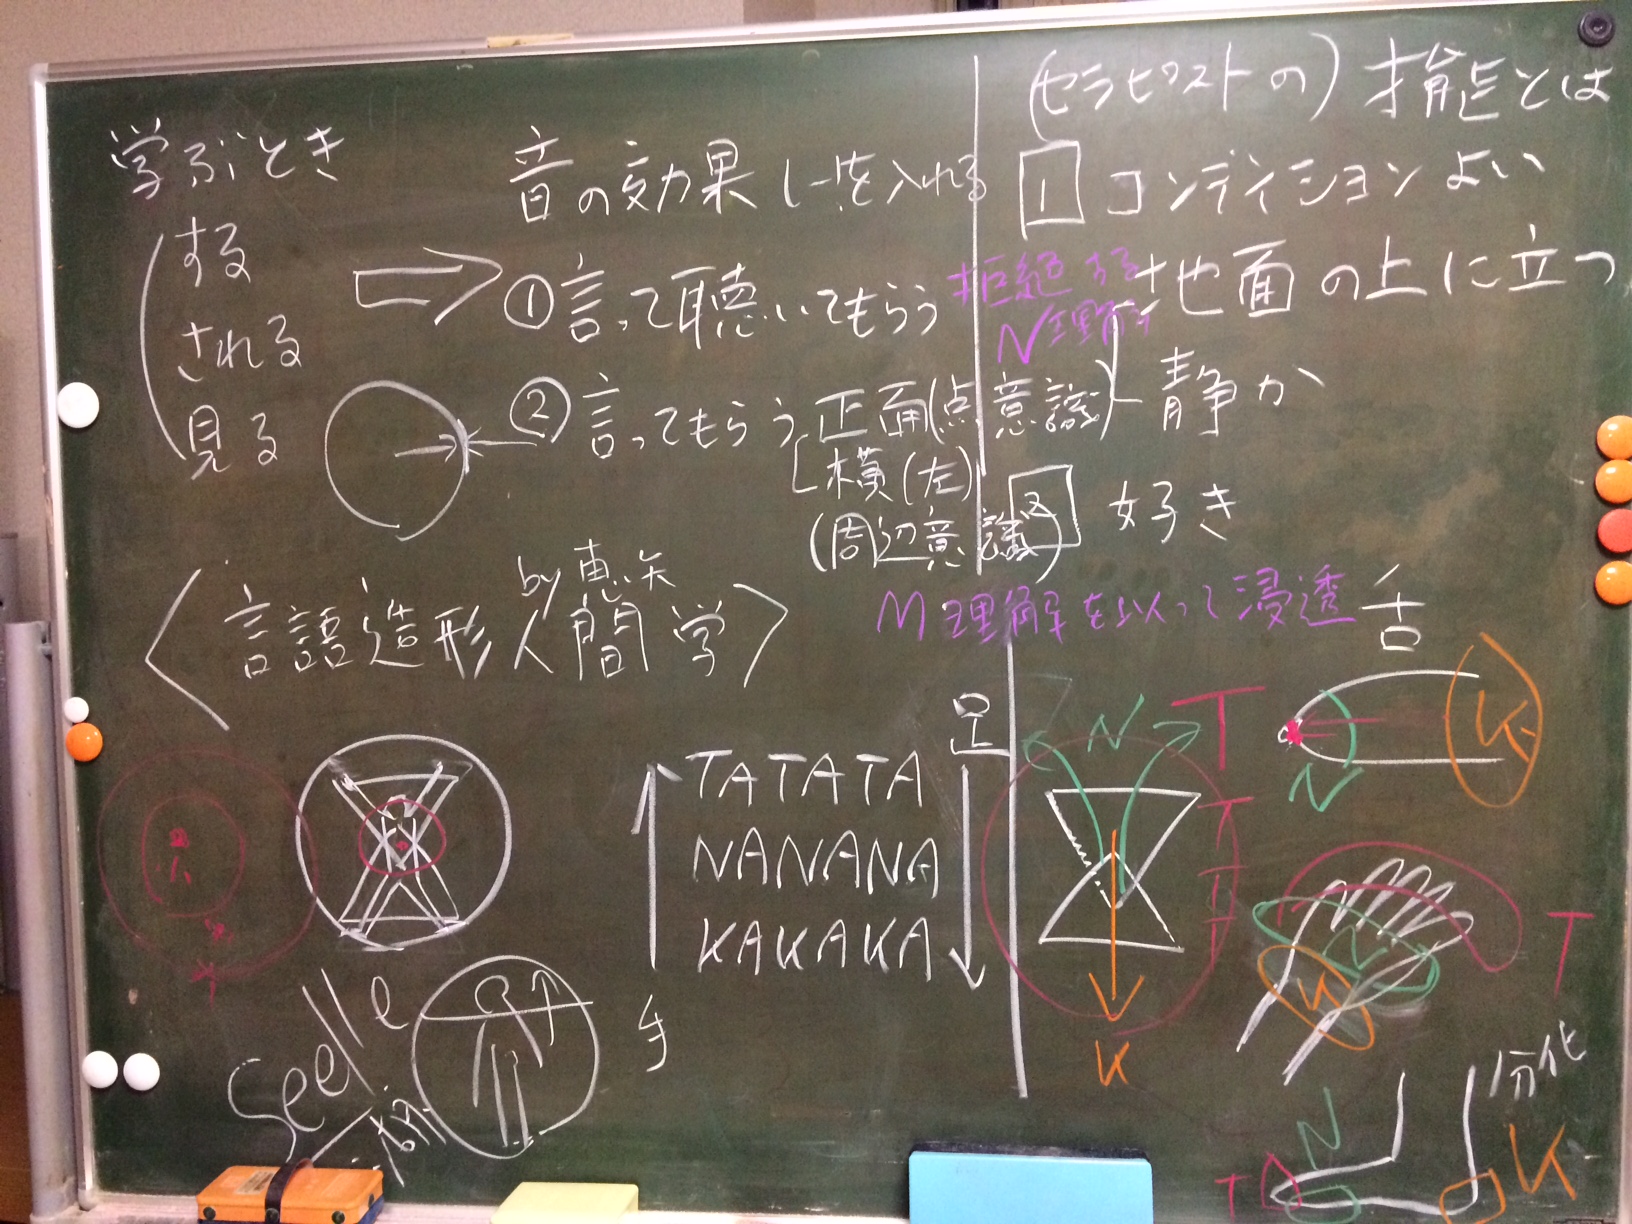 学ぶとき
する
される
見る
音の効果 しーを入れる
①言って聴いてもらう
②言ってもらう 正面(点意識)
横(左)
(周辺意識)
拒絶する
N理解
(セラピストの)才能とは
1 コンディションよい
地面の上に立つ
静か
2 好き
by 恵矢
〈言語造形人間学〉
M理解を以って浸透
舌
足
TATATA
NANANA
KAKAKA
手
N T
T
T
T
K
N K
T
N
K
分化
N
T K
Seele